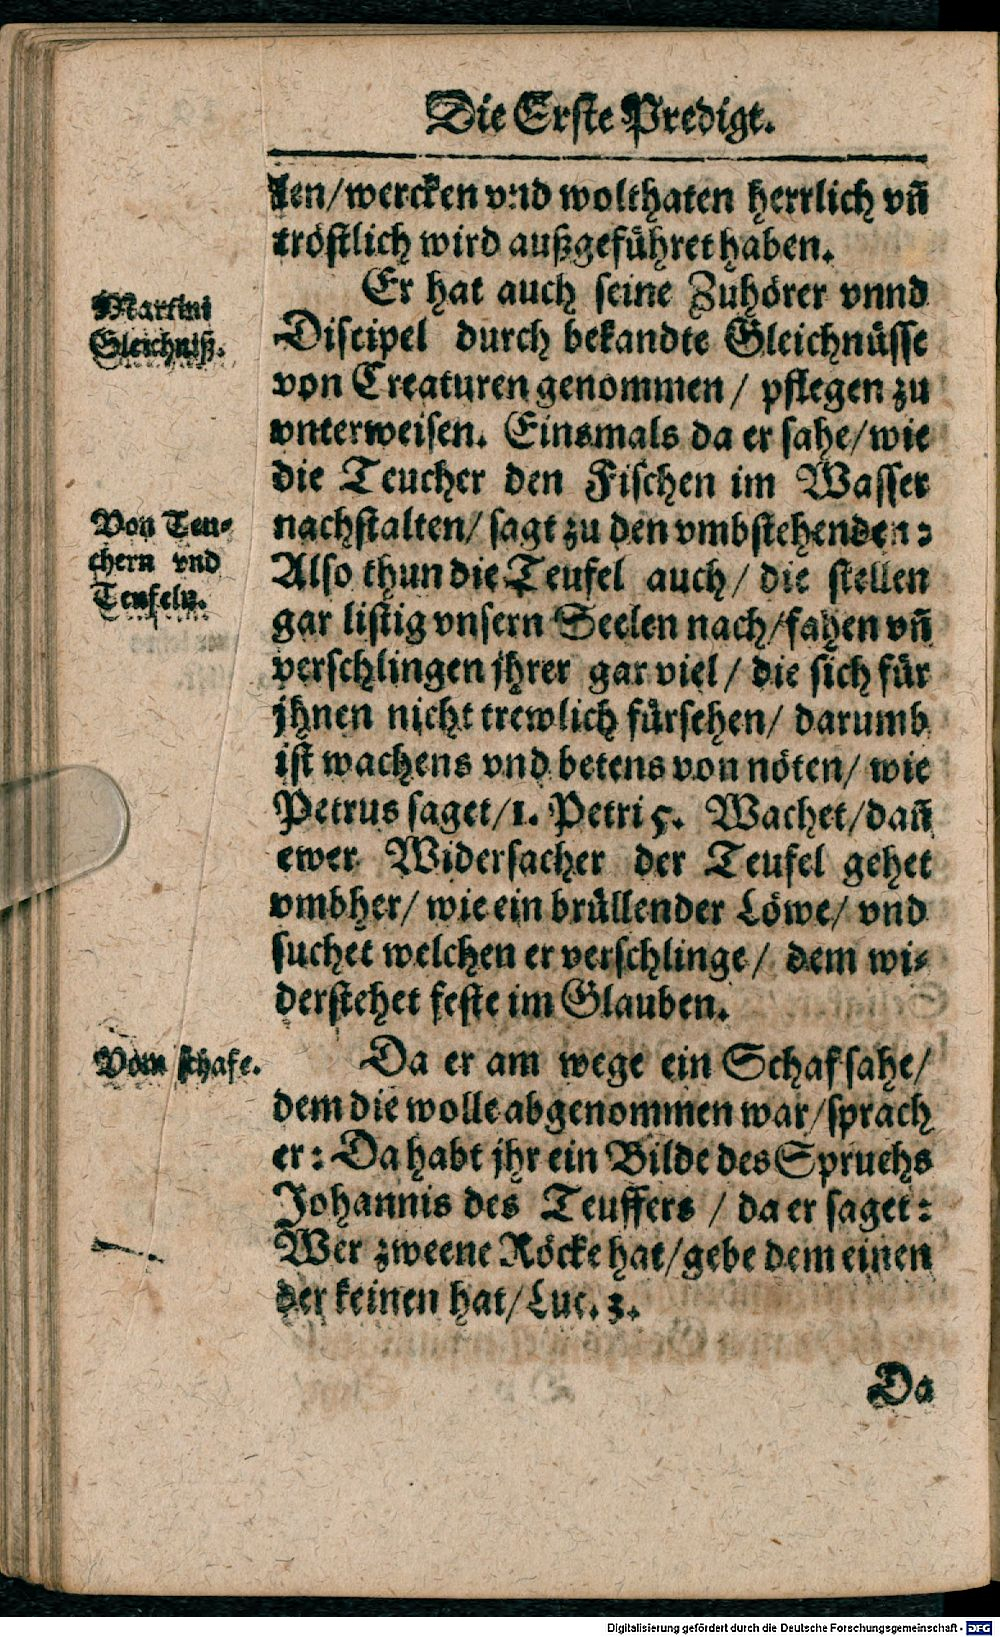 Die Erste Predigt.
len/wercken vnd wolthaten herrlich vñ
tröstlich wird außgeführet haben.
Martini
Gleichniß.
Er hat auch seine Zuhörer vnnd
Discipel durch bekandte Gleichnüsse
von Creaturen genommen / pflegen zu
vnterweisen. Einsmals da er sahe/wie
die Teucher den Fischen im Wasser
Von Teu-
chern vnd
Teufeln.
nachstalten/ sagt zu den vmbstehenden:
Also thun die Teufel auch/ die stellen
gar listig vnsern Seelen nach/fahen vñ
verschlingen jhrer gar viel / die sich für
jhnen nicht trewlich fürsehen/ darumb
ist wachens vnd betens von nöten/ wie
Petrus saget/1. Petri 5. Wachet/dañ
ewer Widersacher der Teufel gehet
vmbher/ wie ein brüllender Löwe/ vnd
suchet welchen er verschlinge/ dem wi-
derstehet feste im Glauben.
Vom schafe.
Da er am wege ein Schaf sahe/
dem die wolle abgenommen war/sprach
er: Da habt jhr ein Bilde des Spruchs
Johannis des Teuffers / da er saget:
Wer zweene Röcke hat/gebe dem einen
der keinen hat/Luc. 3.
Da
Digitalisierung gefördert durch die Deutsche Forschungsgemeinschaft - DFG